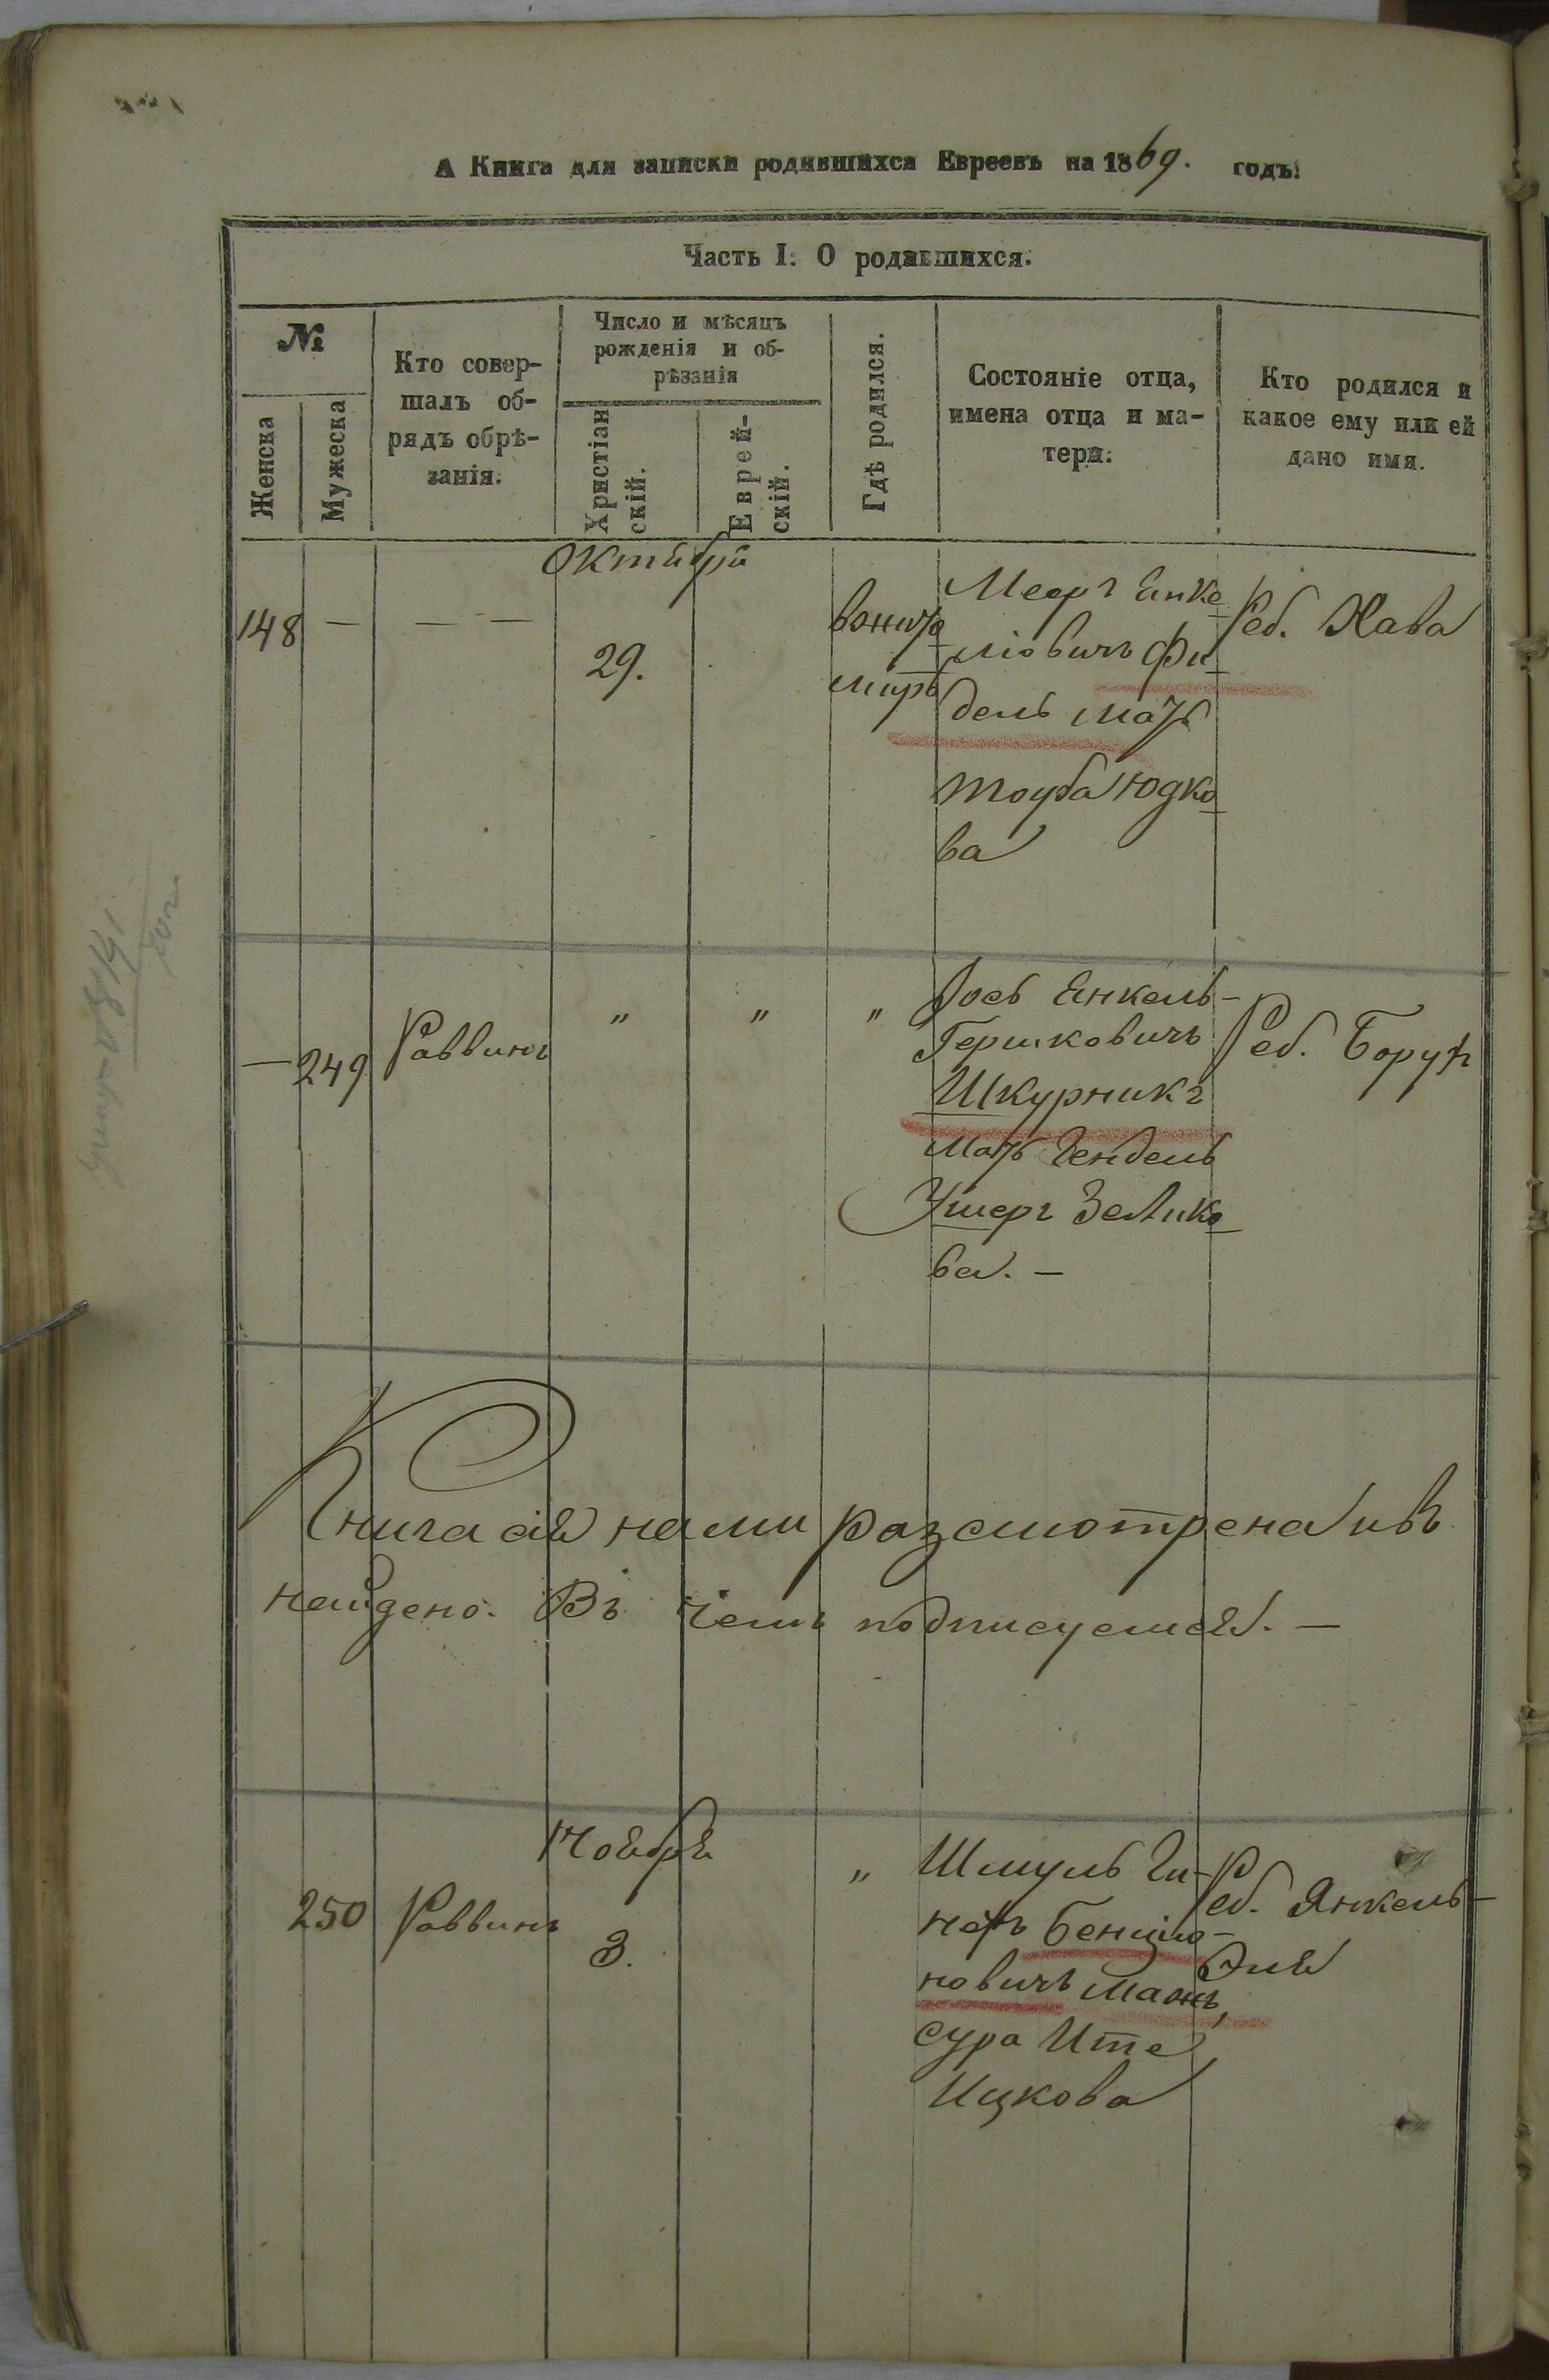 А Книга для записки родившихся Евреевъ на 1869. годъ.
Часть I. О родившихся.
№
Женска
Мужеска
Кто совер-
шалъ об-
рядъ обрѣ-
занія.
Число и мѣсяцъ
рожденія и об-
рѣзанія
Христіан
скій.
Еврей-
скій.
Гдѣ родился.
Состояніе отца,
имена отца и ма-
тери.
Кто родился и
какое ему или ей
дано имя.
Октября
148 — — — —
29.
Мееръ Енке
ліовичъ Фи
дель мать
тоуба Юдко
ва
Реб. Хава
— 249 Раввинъ " " "
Іось Енкель-
Гершковичъ
Шкурникъ
мать Гендель
Ушеръ Зелико
ва. —
Реб. Борух
Книга сія нами разсмотрена и въ
найдено. Въ чемъ подписуемся. —
Ноября
250 Раввинъ 3. "
Шмуль Ги-
нехъ Бенціо-
новичъ
сура Ите
Ицкова
Реб. Янкель-
Эля